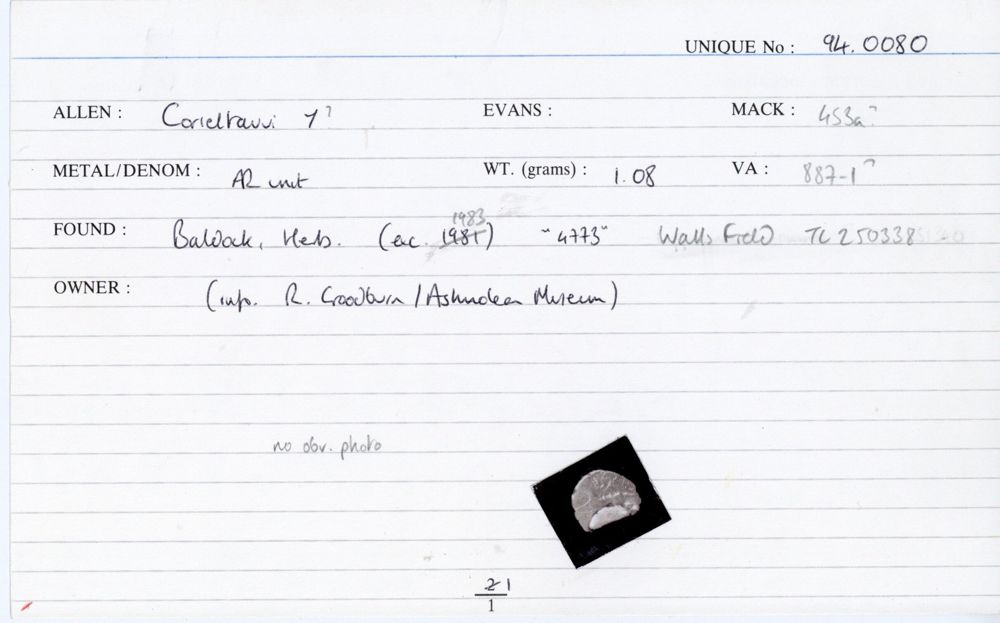 UNIQUE No : 94.0080
ALLEN : Corieltauvi 1? EVANS : MACK : 453a?
METAL/DENOM : AR unit WT. (grams) : 1.08 VA : 887-1?
1983
FOUND : Baldock, Herts. (exc. 1981) "4773" Walls Field TL 250338
OWNER : (info. R. Goodburn / Ashmolean Museum)
no obv. photo
2 1
1